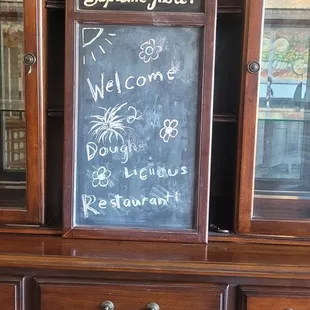 Welcome
2
Dough
Licious
Restaurant!